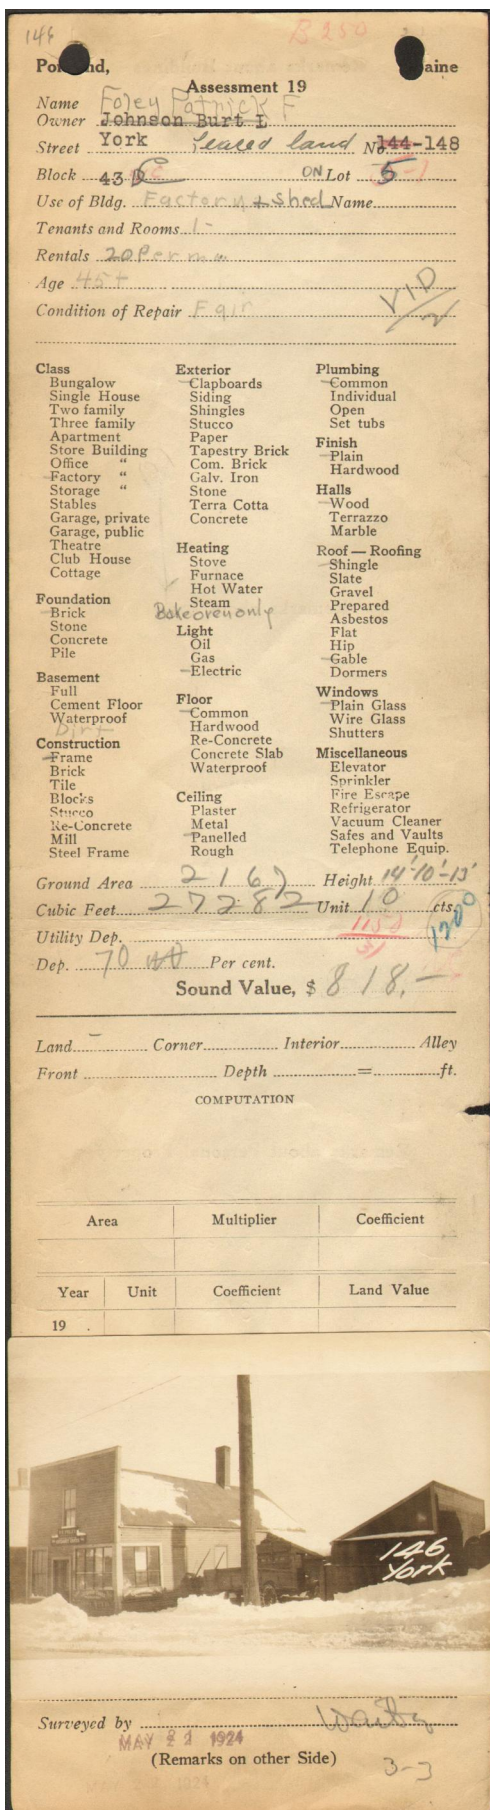 146 B.250
Portland, Maine
Assessment 19
Name Foley Patrick F
Owner Johnson Burt L
Street York Leased land No. 144-148
Block 43 ON Lot 5
Use of Bldg. Factory + Shed Name
Tenants and Rooms 1-
Rentals 20 Per mo
Age 45+
Condition of Repair Fair
Class
Bungalow
Single House
Two family
Three family
Apartment
Store Building
Office "
Factory "
Storage "
Stables
Garage, private
Garage, public
Theatre
Club House
Cottage
Foundation
Brick
Stone
Concrete
Pile
Basement
Full
Cement Floor
Waterproof
Dirt
Construction
Frame
Brick
Tile
Blocks
Stucco
Re-Concrete
Mill
Steel Frame
Exterior
Clapboards
Siding
Shingles
Stucco
Paper
Tapestry Brick
Com. Brick
Galv. Iron
Stone
Terra Cotta
Concrete
Heating
Stove
Furnace
Hot Water
Steam
Bake oven only
Light
Oil
Gas
Electric
Floor
Common
Hardwood
Re-Concrete
Concrete Slab
Waterproof
Ceiling
Plaster
Metal
Panelled
Rough
Plumbing
Common
Individual
Open
Set tubs
Finish
Plain
Hardwood
Halls
Wood
Terrazzo
Marble
Roof — Roofing
Shingle
Slate
Gravel
Prepared
Asbestos
Flat
Hip
Gable
Dormers
Windows
Plain Glass
Wire Glass
Shutters
Miscellaneous
Elevator
Sprinkler
Fire Escape
Refrigerator
Vacuum Cleaner
Safes and Vaults
Telephone Equip.
Ground Area 2167 Height 14'-10'-13'
Cubic Feet 27282 Unit 10 cts.
1200
Utility Dep. 1150
Dep. 70 Per cent.
Sound Value, $ 818.—
Land Corner Interior Alley
Front Depth = ft.
COMPUTATION
Area Multiplier Coefficient
Year Unit Coefficient Land Value
19 .
146
York
Surveyed by
MAY 22 1924
(Remarks on other Side)
3-3